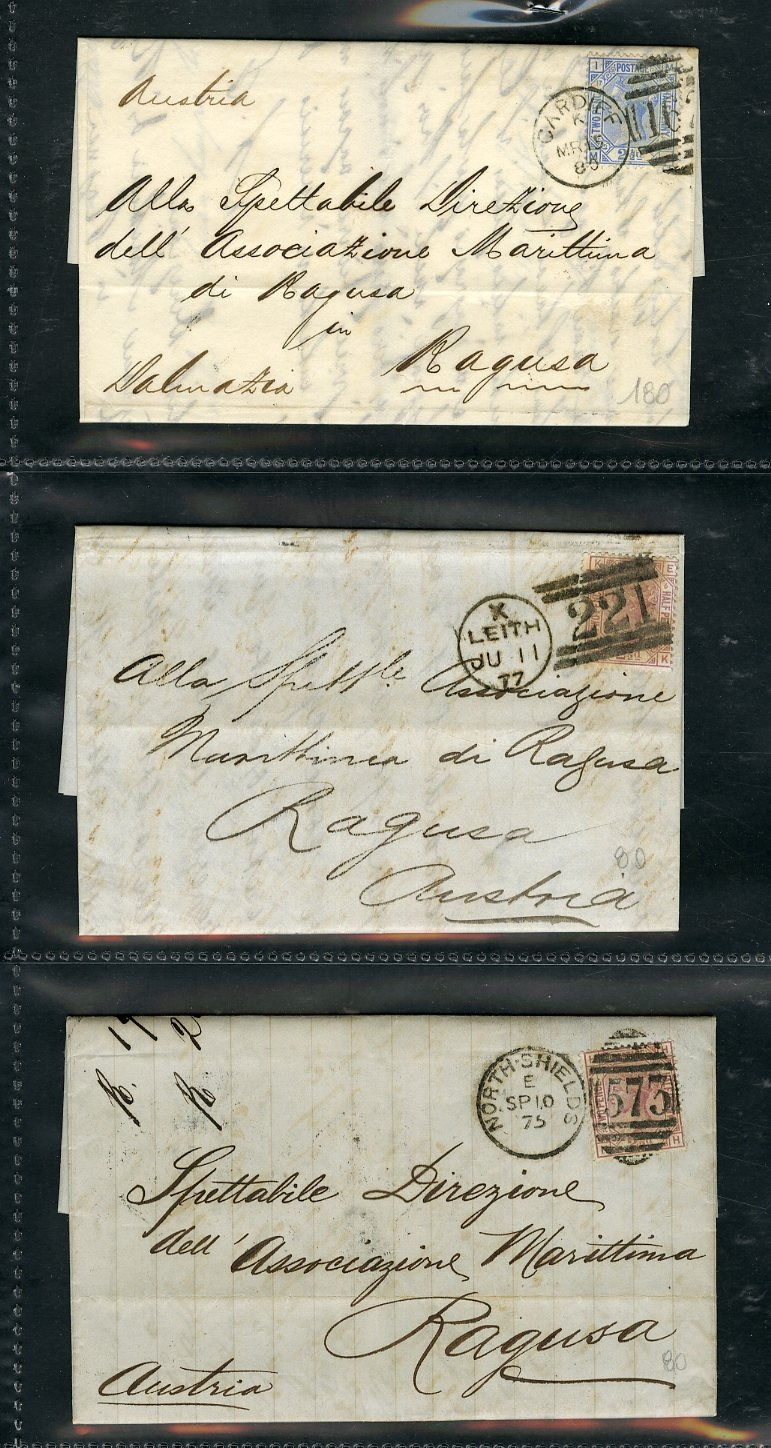 Austria
1 POSTAGE
TWO
2½
CARDIFF
K
MR 15
80
162
Alla Spettabile Direzione
dell' Associazione Marittima
di Ragusa
in
Ragusa
Dalmazia
180
X
LEITH
JU 11
77
221
K E
HALF PE
K
Alla Spettle. Associazione
Marittima di Ragusa
Ragusa
80
Austria
NORTH-SHIELDS
E
SP 10
75
573
H
H
Spettabile Direzione
dell' Associazione Marittima
Ragusa
80
Austria